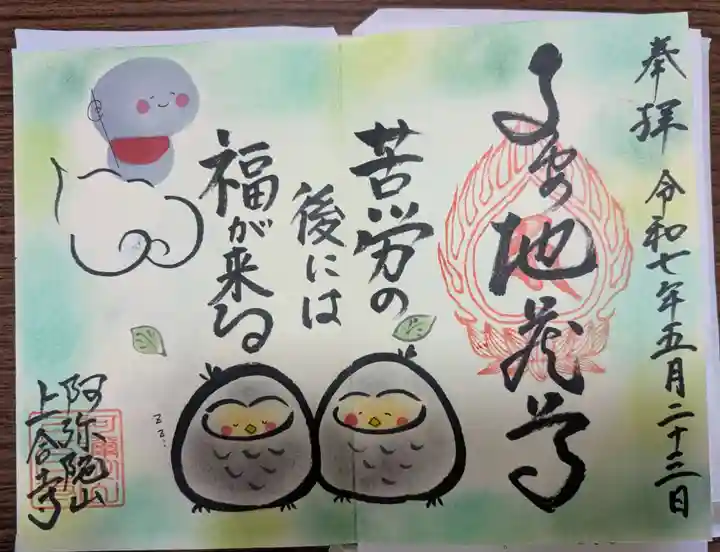 奉拝 令和七年五月二十三日
子安地蔵尊
苦労の
後には
福が来る
阿弥陀山
上合寺
zzz